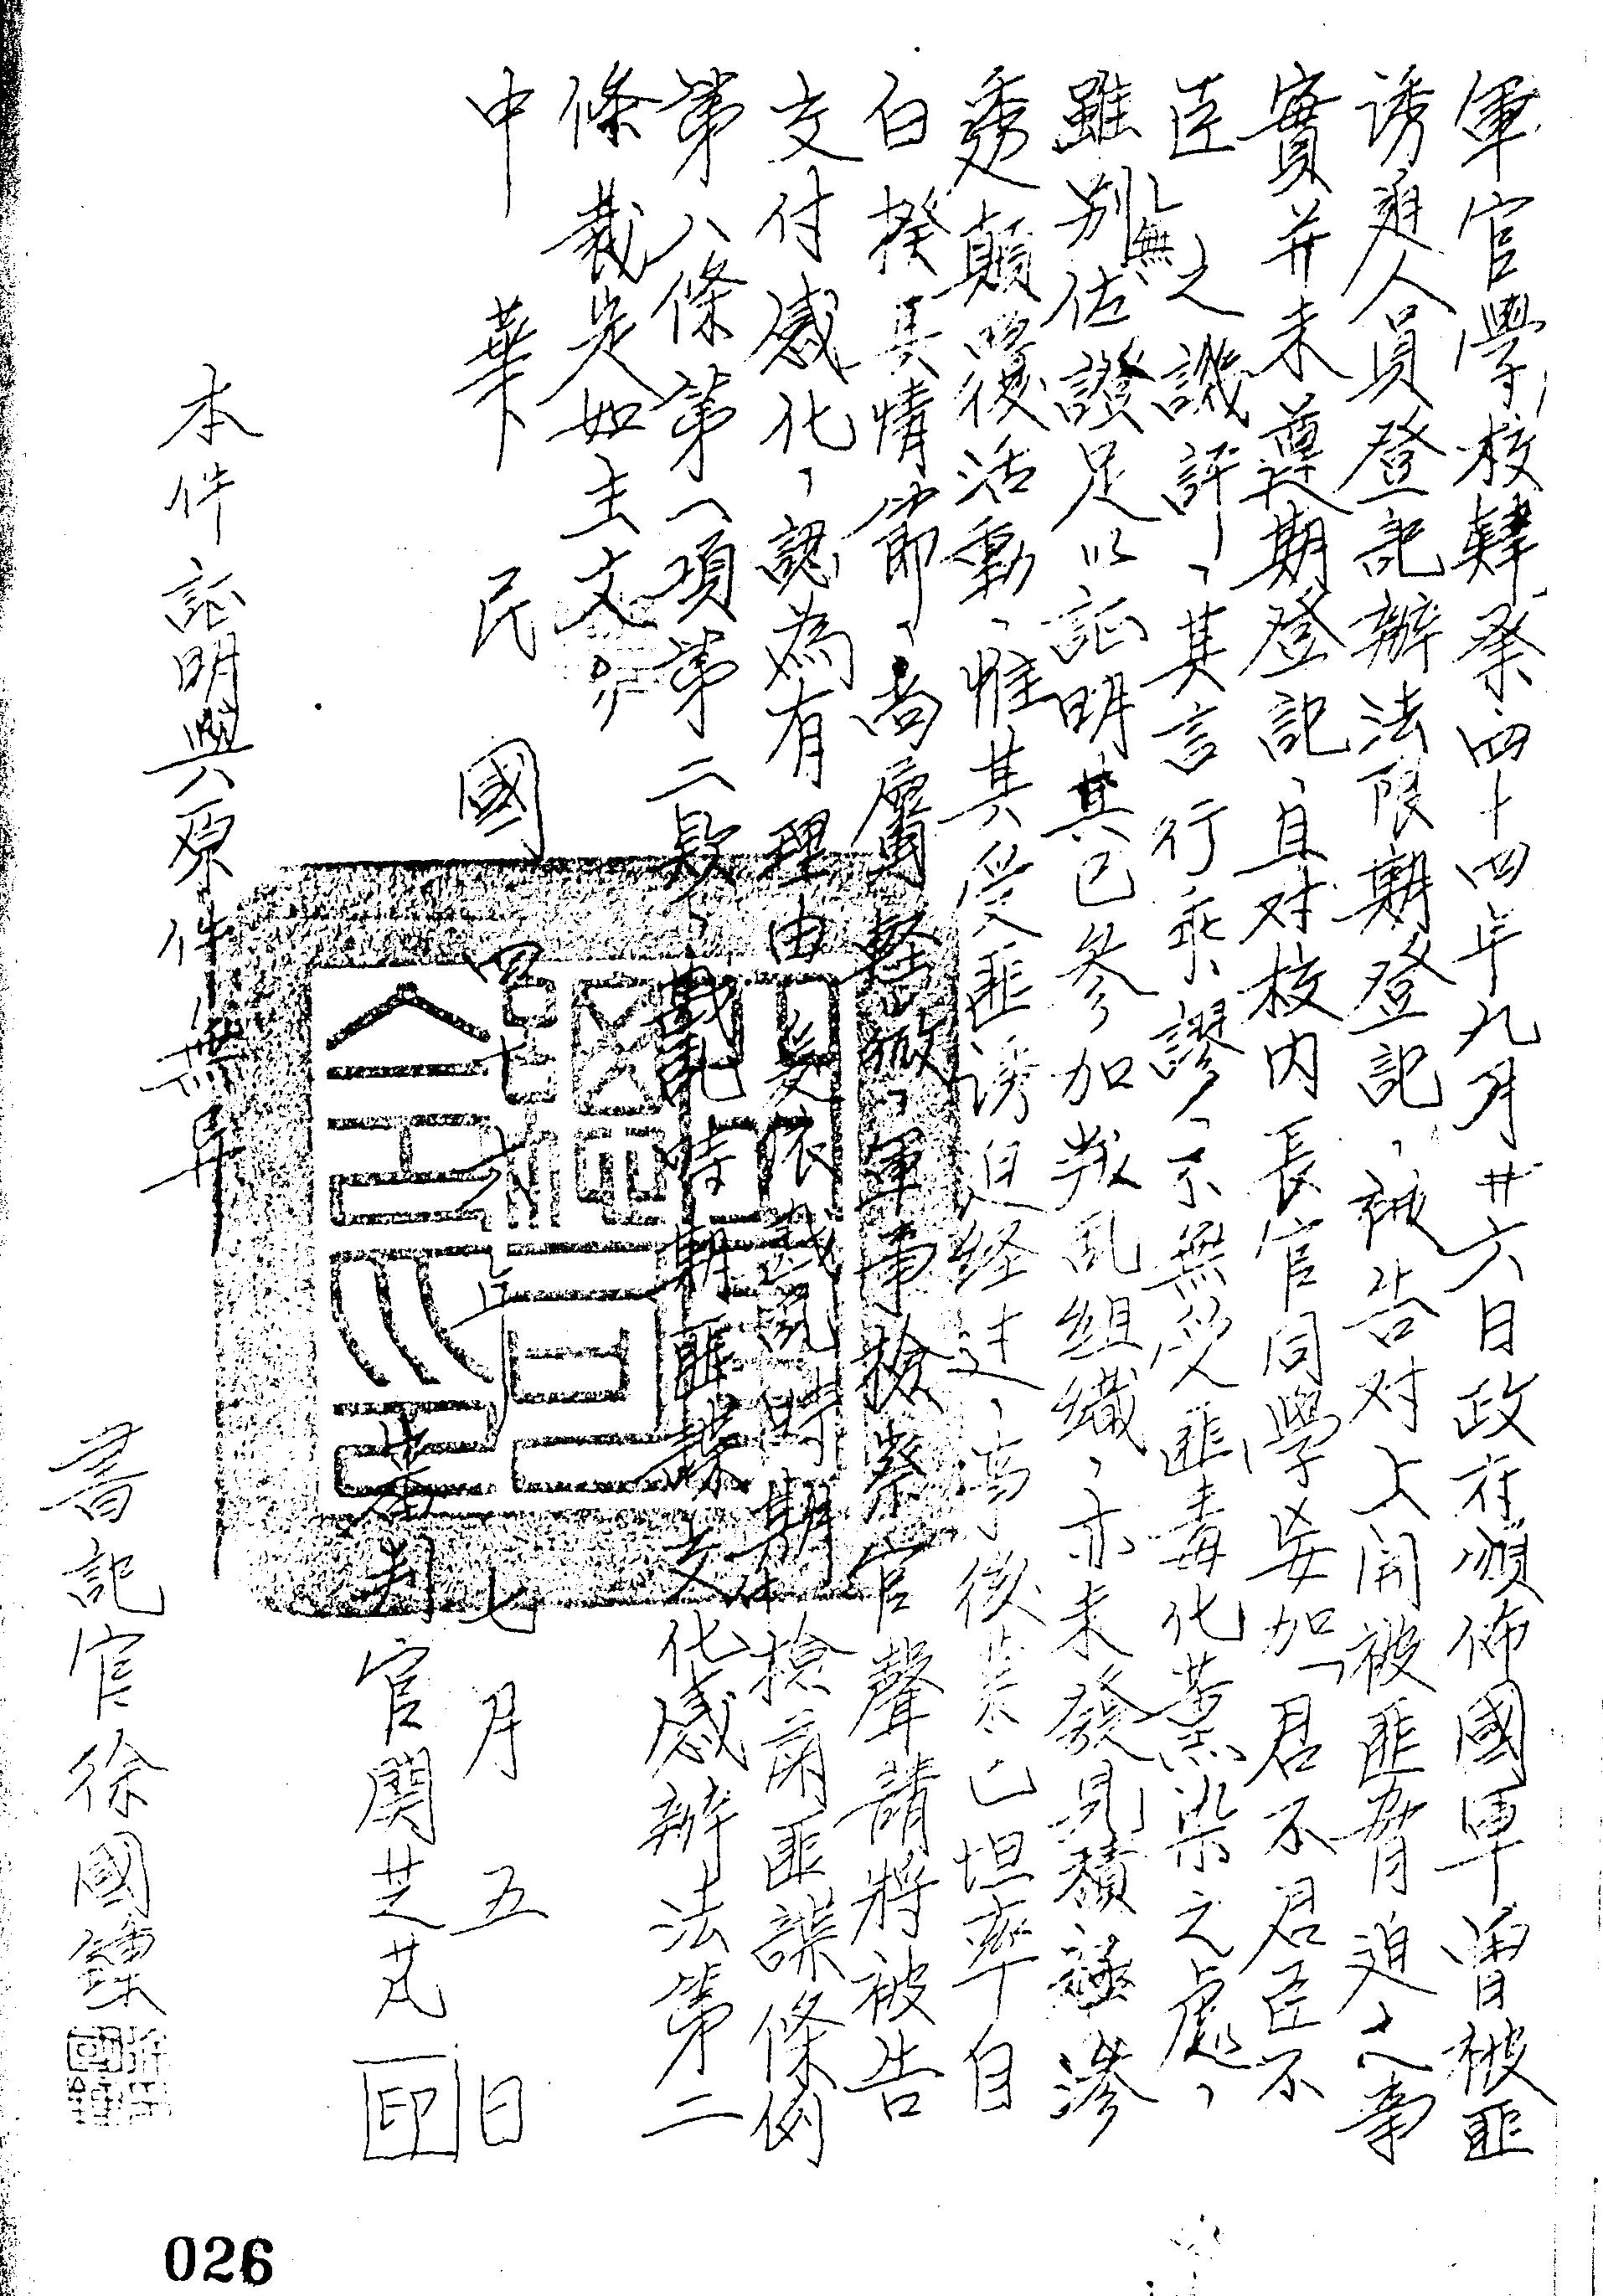 軍官學校肄業四十四年九月廿六日政府頒佈國軍曾被匪
誘迫人員登記辦法限期登記、被告对上開被匪脅迫之事
實并未遵期登記、且对校内長官同學妄加「君不君臣不
臣」之譏評、其言行乖謬、不無受匪毒化薰染之處、
雖別無佐證足以証明其已參加叛乱組織、亦未發見積極滲
透顛覆活動、惟其受匪誘迫经过、事後業已坦率自
白揆其情節、尚屬輕微、軍事檢察官聲請將被告
交付感化、認為有理由、爰依戡乱時期檢肅匪諜條例
第八條第一項第二款、戡乱時期匪諜交化感辦法第二
條裁定如主文
中華民國四十六年七月五日
審判官関芝芃
印
本件証明與原件無異
書記官徐國鍾
026